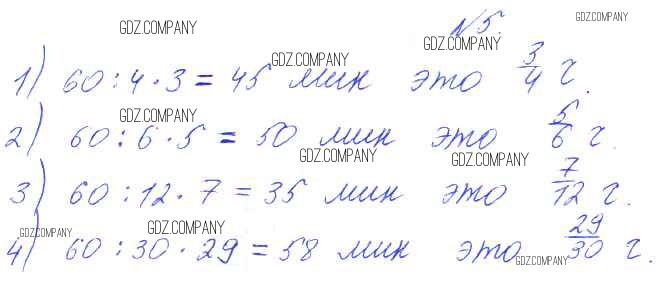 №5.
1) 60 : 4 · 3 = 45 мин это 3/4 ч.
2) 60 : 6 · 5 = 50 мин это 5/6 ч.
3) 60 : 12 · 7 = 35 мин это 7/12 ч.
4) 60 : 30 · 29 = 58 мин это 29/30 ч.
GDZ.COMPANY
GDZ.COMPANY
GDZ.COMPANY
GDZ.COMPANY
GDZ.COMPANY
GDZ.COMPANY
GDZ.COMPANY
GDZ.COMPANY
GDZ.COMPANY
GDZ.COMPANY